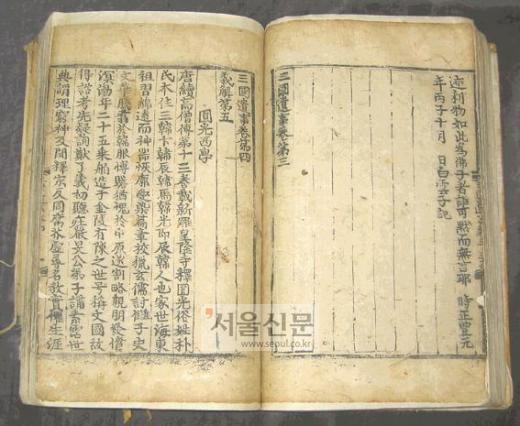 迹利物如此爲佛子者詎可默而無言耶 時正豊元
年丙子十月 日白雲子記
三國遺事卷第三
三國遺事卷第四
義解第五
圓光西學
唐續高僧傳第十三卷載新羅皇隆寺釋圓光俗姓朴
氏本住三韓卞韓辰韓馬韓光即辰韓人也家世海東
祖習綿遠而神器恢廓愛染篇章校獵玄儒討讎子史
文華騰翥於韓服博贍猶愧於中原遂割略親朋發憤
溟渤年二十五乘舶造于金陵有陳之世號稱文國故
得諮考先疑詢猷了義初聽莊嚴旻公弟子講素霑世
典謂理窮神及聞釋宗反同腐芥虛尋名教實懼生涯
서울신문
www.seoul.co.kr